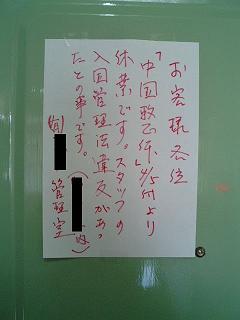 お客様各位
「中国整体」 付より
休業です。スタッフの
入国管理法違反があっ
たとの事です。
(有) ( 内)
管理室